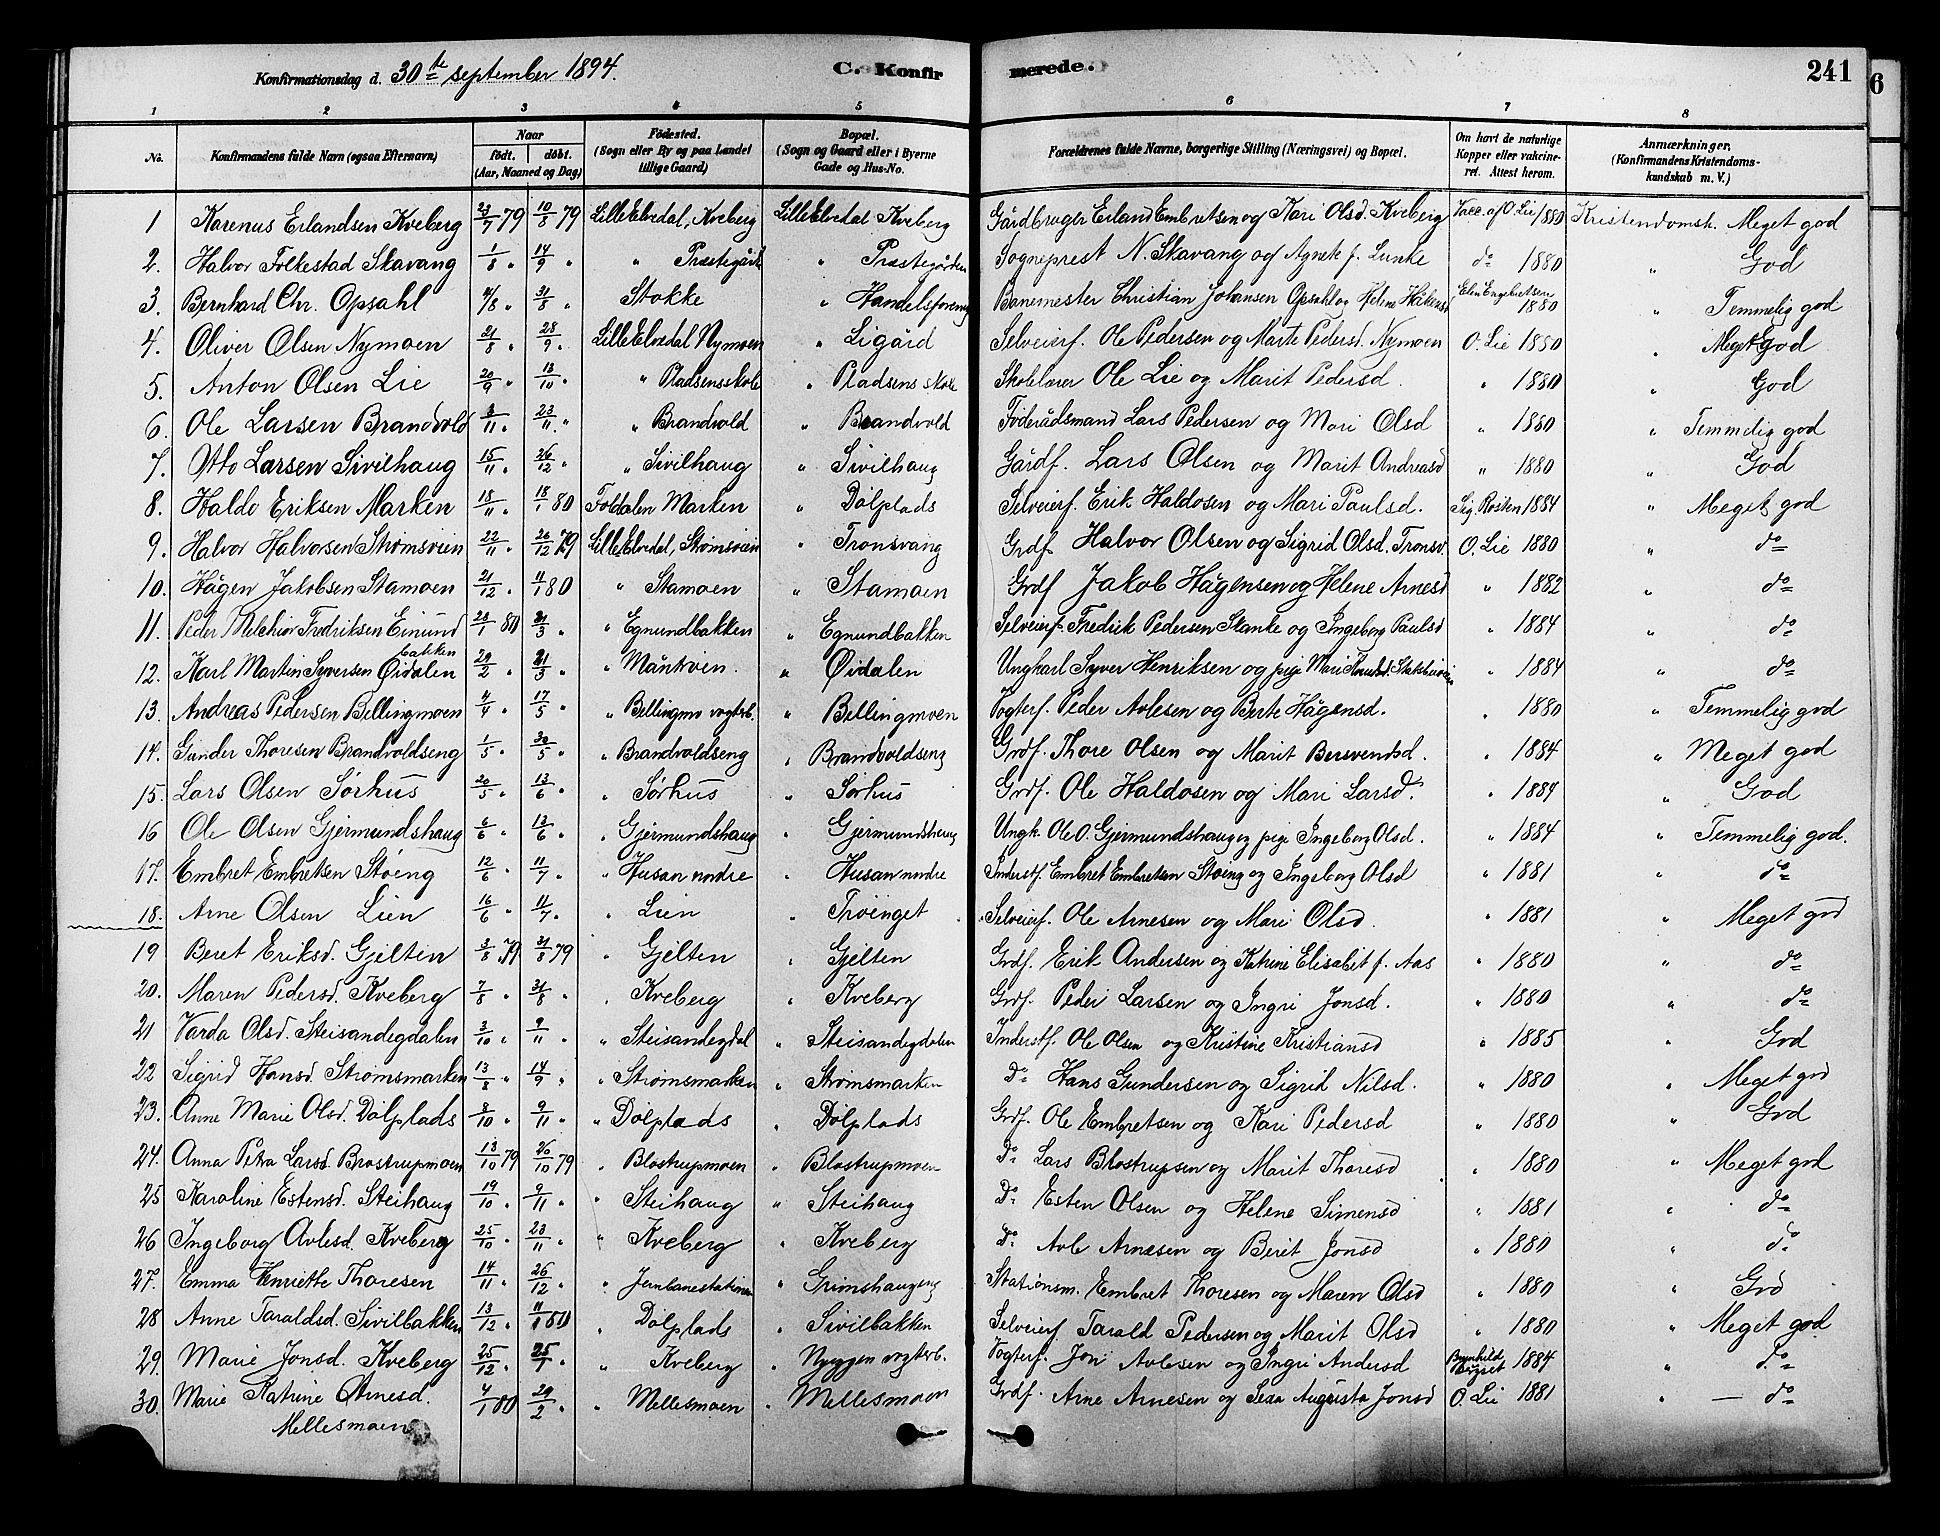 Konfirmationsdag d. 30te september 1894.
C. Konfirmerede.
241
6
1 2 3 4 5 6 7 8
No. Konfirmandens fulde Navn (ogsaa Efternavn) Naar født. døbt. (Aar, Maaned og Dag) Fødested. (Sogn eller By og paa Landet tillige Gaard) Bopæl. (Sogn og Gaard eller i Byerne Gade og Hus-No. Forældrenes fulde Navne, borgerlige Stilling (Næringsvei) og Bopæl. Om havt de naturlige Kopper eller vakcineret. Attest herom. Anmærkninger, (Konfirmandens Kristendomskundskab m. V.)
1 Karenus Erlandsen Kveberg 23/7 79 10/8 79 Lille Elvedal, Kveberg Lille Elvedal Kveberg Gårdbruger Erland Embretsen og Kari Olsd. Kveberg Vacc. af O. Lie 1880 Kristendomsk. Meget god
2. Halvor Folkestad Skavang 1/8 " 14/9 " " Præstegårde " Præstegården Sogneprest N. Skavang og Agnete f. Lunke do 1880 " God
3. Bernhard Chr. Opsahl 11/8 " 31/8 " Stokke " Handelsforening Banemester Christian Johansen Opsahl og Helene Håkensd Elen Engebretsen 1880 " Temmelig god
4. Oliver Olsen Nymoen 21/8 " 28/9 " Lille Elvedal Nymoen " Ligård Selveierf. Ole Pedersen og Marte Pedersd. Nymoen O. Lie 1880 " Meget god
5. Anton Olsen Lie 20/9 " 13/10 " " Pladsensskole " Pladsens skole Skolelærer Ole Lie og Marit Pedersd. " 1880 " God
6. Ole Larsen Brandvold 3/11 " 23/11 " " Brandvold " Brandvold Føderådsmand Lars Pedersen og Mari Olsd " 1880 " Temmelig god
7. Otto Larsen Sivilhaug 15/11 " 26/12 " " Sivilhaug " Sivilhaug Gårdf. Lars Olsen og Marit Andreasd " 1880 " God
8. Haldo Eriksen Marken 18/11 " 18/1 80 Foldalen Marken " Dølplads Selveierf. Erik Haldosen og Mari Paulsd. Sig. Rosten 1884 " Meget god
9. Halvor Halvorsen Strømsveien 22/11 " 26/12 79 Lille Elvedal, Strømsveien " Tronsvang Grdf Halvor Olsen og Sigrid Olsd. Tronsv. O. Lie 1880 " do
10. Hågen Jakobsen Stamoen 21/12 " 11/1 80 " Stamoen " Stamoen Grdf Jakob Hågensen og Helene Arnesd " 1882 " do
11. Peder Melchior Fredriksen Einundbakken 23/1 80 21/3 " " Egnundbakken " Egnundbakken Selveierf. Fredrik Pedersen Stanke og Ingeborg Paulsd " 1884 " do
12. Karl Martin Syversen Øidalen 29/2 " 21/3 " " Månkoien " Øidalen Ungkarl Syver Henriksen og pige Mari " 1884 " do
13. Andreas Pedersen Bellingmoen 4/4 " 17/5 " " Bellingmo vogterb. " Bellingmoen Vogterf. Peder Avlesen og Berte Hågensd. " 1880 " Temmelig god
14. Gunder Thoresen Brandvoldseng 1/5 " 30/5 " " Brandvoldseng " Brandvoldseng Grdf. Thore Olsen og Marit Bersvendsd. " 1884 " Meget god
15. Lars Olsen Sørhus 20/5 " 13/6 " " Sørhus " Sørhus Grdf. Ole Haldosen og Mari Larsd. " 1884 " God
16 Ole Olsen Gjermundshaug 6/6 " 13/6 " " Gjermundshaug " Gjermundshaug Ungk. Ole O. Gjermundshaug og pige Ingeborg Olsd. " 1884 " Temmelig god.
17. Embret Embretsen Støeng 12/6 " 11/7 " " Husan nordre " Husan nordre Inderstf. Embret Embretsen Støeng og Ingeborg Olsd " 1881 " do
18. Arne Olsen Lien 16/6 " 11/7 " " Lien " Trøenget Selveierf. Ole Arnesen og Mari Olsd. " 1881 " Meget god
19 Beret Eriksd. Gjelten 3/8 79 31/8 79 " Gjelten " Gjelten Grdf. Erik Andersen og Katrine Elisabet f. Aas " 1880 " do
20. Maren Pedersd. Kveberg 7/8 " 31/8 " " Kveberg " Kveberg Grdf. Peder Larsen og Ingri Jonsd. " 1880 " do
21 Varda Olsd. Steisandegdalen 3/10 " 9/11 " " Steisandegdal " Steisandegdalen Inderstf. Ole Olsen og Kristine Kristiansd " 1885 " God
22 Sigrid Hansd. Strømsmarken 13/8 " 14/9 " " Strømsmarken " Strømsmarken Do Hans Gundersen og Sigrid Nilsd. " 1880 " Meget god
23. Anne Marie Olsd. Dølplads 8/10 " 9/11 " " Dølplads " Dølplads Grdf. Ole Embretsen og Kari Pedersd " 1880 " God
24. Anna Petra Larsd. Brostrupmoen 13/10 79 26/10 79 " Blostrupmoen " Blostrupmoen Do Lars Blostrupsen og Marit Thoresd " 1880 " Meget god
25 Karoline Estensd. Steihaug 19/10 " 9/11 " " Steihaug " Steihaug Do Esten Olsen og Helene Simensd " 1881 " do
26 Ingeborg Avlesd. Kveberg 25/10 " 23/11 " " Kveberg " Kveberg Do Avle Arnesen og Berit Jonsd " 1880 " do
27. Emma Henriette Thoresen 14/11 " 26/12 " " Jernbanestationen " Grimshaugeng Stationsm. Embret Thoresen og Maren Olsd " 1880 " God
28 Anne Taraldsd. Sivilbakken 13/12 " 11/1 80 " Dølplads " Sivilbakken Selveierf Tarald Pedersen og Marit Olsd " 1880 " Meget god
29. Marie Jonsd. Kveberg 25/12 " 25/1 " " Kveberg " Nyggen vogterb. Vogterf. Jon Avlesen og Ingri Andersd Brynhild 1884 " do
30. Marie Katrine Arnesd. Mellesmoen 4/1 80 29/2 " " Mellesmoen " Mellesmoen Grdf. Arne Arnesen og Augusta Jonsd O. Lie 1881 " — do